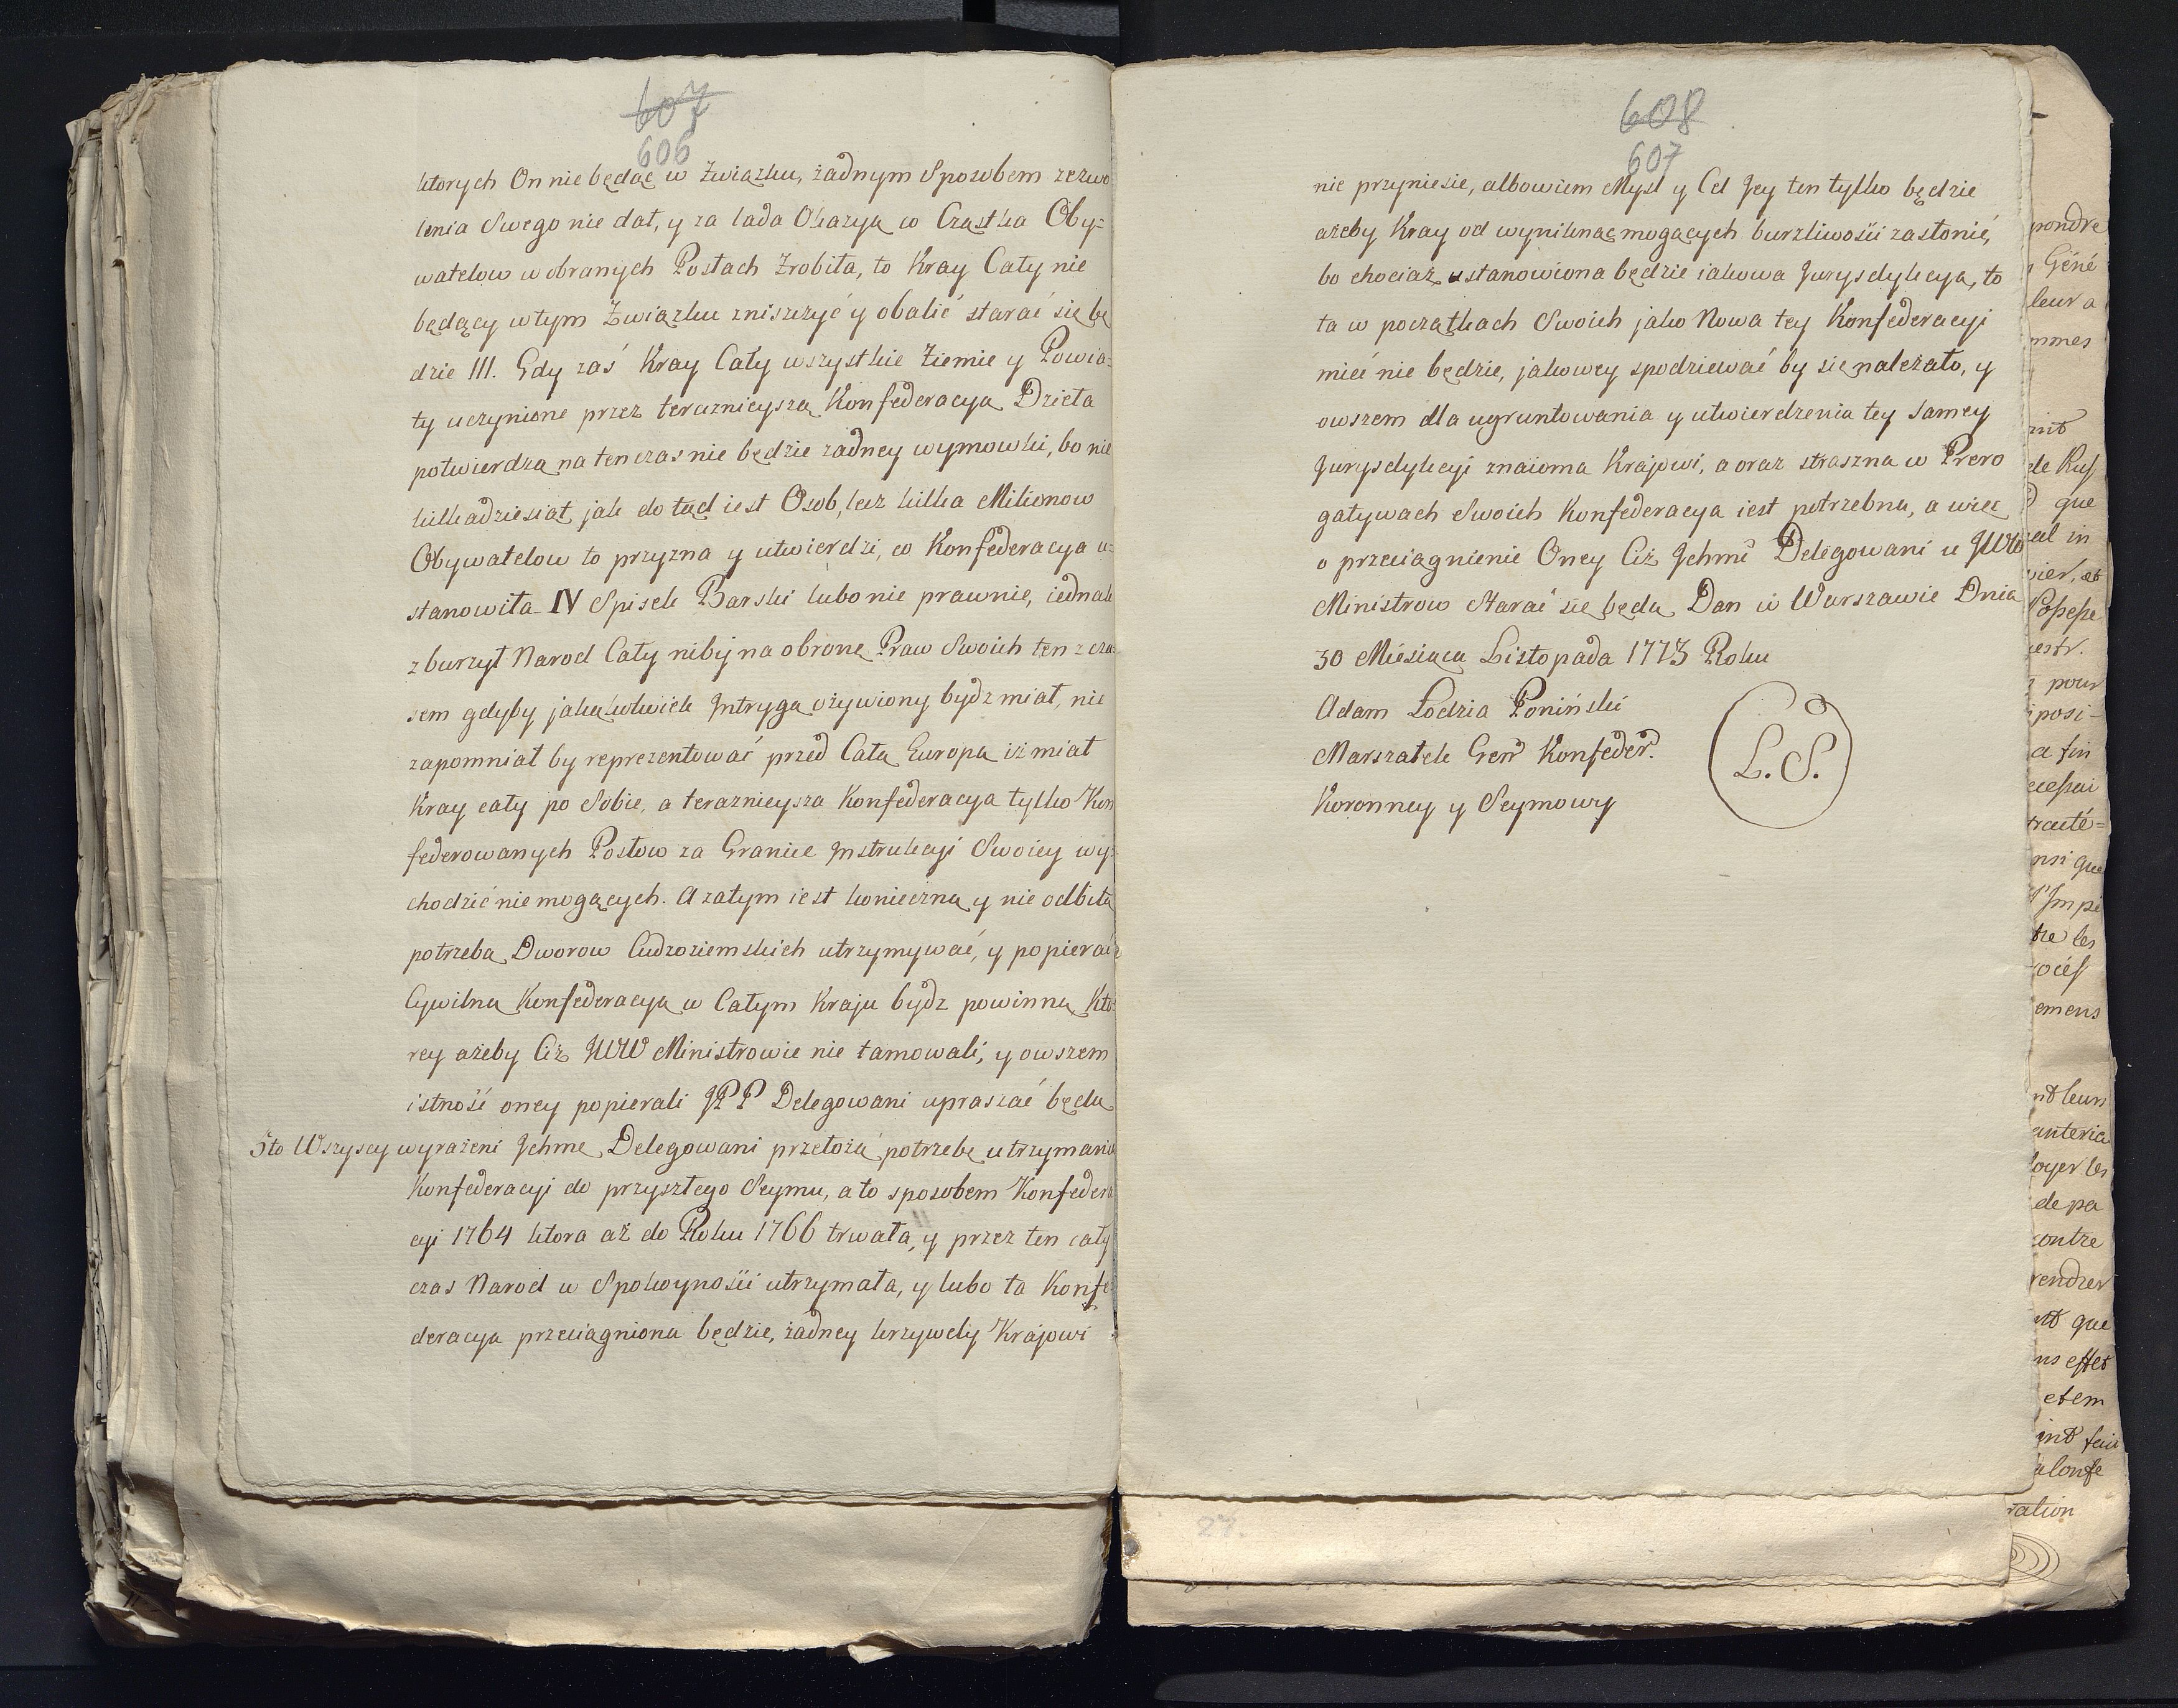 607
606
ktorych On nie będąc w Związku, żadnym Sposobem zezwo
lenia Swego nie dał, y za lada Okazyą w Cząstka Oby=
watelow wobranych Posłach Zrobiła, to Kray Cały nie
będący w tym Związku zniszczyć y obalić starać się bę
dzie III. Gdy zaś Kray Cały wszystkie Ziemie y Powia=
ty uczynione przez teraznieyszą Konfederacyą Dzieła
potwierdzą na ten czas nie będzie żadney wymowki, bo nie
kilkadziesiąt jak do tąd iest Osob, lecz kilka Milionow
Obywatelow to przyzna y utwierdzi, co Konfederacya u=
stanowiła IV Spisek Barski lubo nie prawnie, iednak
zburzył Narod Cały niby na obronę Praw Swoich ten z cza
sem gdyby jakążkolwiek Intrygą ożywiony bydz miał, nie
zapomniał by reprezentować przed Całą Europą iż miał
Kray cały po Sobie, a teraznieysza Konfederacya tylko Kon
federowanych Posłow za Granice Instrukcyi Swoiey wy=
chodzić nie mogących. A zatym iest konieczna y nie odbita
potrzeba Dworow Cudzoziemskich utrzymywać, y popierać
Cywilna Konfederacya w Całym Kraju bydz powinna, Kto=
rey ażeby Ciż JWW Ministrowie nie tamowali, y owszem
istność oney popierali JPP Delegowani upraszać będą
5to Wszyscy wyrażeni Ichme Delegowani przełożą potrzebę utrzymania
Konfederacyi do przyszłego Seymu, a to sposobem Konfedera
cyi 1764 ktora aż do Roku 1766 trwała, y przez ten cały
czas Narod w Spokoyności utrzymała, y lubo ta Konfe
deracya przeciągniona będzie, żadney krzywdy Krajowi
608
607
nie przyniesie, albowiem Mysl y Cel Jey ten tylko będzie
ażeby Kray od wyniknąć mogących burzliwości zasłonić,
bo chociaż ustanowiona będzie iakowa Jurysdykcya, to
ta w początkach Swoich jako Nowa tey Konfederacyi
mieć nie będzie, jakowey spodziewać by się należało, y
owszem dla ugruntowania y utwierdzenia tey samey
Jurysdykcyi znaioma Krajowi, a oraz straszna w Prero
gatywach Swoich Konfederacya iest potrzebna, a więc
o przeciągnienie Oney Ciż Ichmē Delegowani u JWW
Ministrow Starać się będą Dan w Warszawie Dnia
30 Miesiąca Listopada 1773 Roku
Adam Łodzia Poniński
Marszałek Genr̃ Konfeder.
Koronney y Seymowy
L. S.
27.
pondre
Géné
leur a
mmes
que
pour
a fin
nsi que
emens
nd leurs
oyer les
de pa
contre
rendrer
que
ration